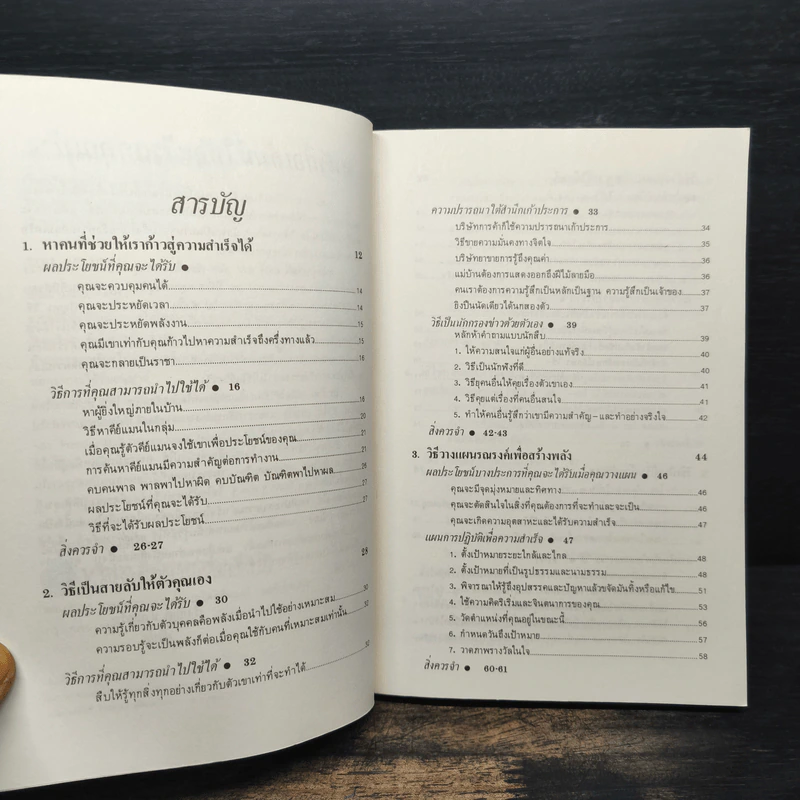 สารบัญ
1. หาคนที่ช่วยให้เราก้าวสู่ความสำเร็จได้ 12
ผลประโยชน์ที่คุณจะได้รับ ●
คุณจะควบคุมคนได้ 14
คุณจะประหยัดเวลา 14
คุณจะประหยัดพลังงาน 15
คุณมีเขาเท่ากับคุณก้าวไปหาความสำเร็จถึงครึ่งทางแล้ว 15
คุณจะกลายเป็นราชา 16
วิธีการที่คุณสามารถนำไปใช้ได้ ● 16
หาผู้ยิ่งใหญ่ภายในบ้าน 18
วิธีหาคีย์แมนในกลุ่ม 20
เมื่อคุณรู้ตัวคีย์แมนจงใช้เขาเพื่อประโยชน์ของคุณ 21
การค้นหาคีย์แมนมีความสำคัญต่อการทำงาน 24
คบคนพาล พาลพาไปหาผิด คบบัณฑิต บัณฑิตพาไปหาผล 27
ผลประโยชน์ที่คุณจะได้รับ 27
วิธีที่จะได้รับผลประโยชน์
สิ่งควรจำ ● 26-27
2. วิธีเป็นสายลับให้ตัวคุณเอง 28
ผลประโยชน์ที่คุณจะได้รับ ● 30
ความรู้เกี่ยวกับตัวบุคคลคือพลังเมื่อนำไปใช้อย่างเหมาะสม 30
ความรอบรู้จะเป็นพลังก็ต่อเมื่อคุณใช้กับคนที่เหมาะสมเท่านั้น 30
วิธีการที่คุณสามารถนำไปใช้ได้ ● 32
สืบให้รู้ทุกสิ่งทุกอย่างเกี่ยวกับตัวเขาเท่าที่จะทำได้
ความปรารถนาใต้สำนึกเก้าประการ ● 33
บริษัทการค้าก็ใช้ความปรารถนาเก้าประการ 34
วิธีขายความมั่นคงทางจิตใจ 35
บริษัทยาขายการรู้ถึงคุณค่า 36
แม่บ้านต้องการแสดงออกถึงฝีไม้ลายมือ 37
คนเราต้องการความรู้สึกเป็นหลักเป็นฐาน ความรู้สึกเป็นเจ้าของ 37
ยิงปืนนัดเดียวได้นกสองตัว 37
วิธีเป็นนักกรองข่าวด้วยตัวเอง ● 39
หลักห้าคำถามแบบนักสืบ 39
1. ให้ความสนใจแก่ผู้อื่นอย่างแท้จริง 40
2. วิธีเป็นนักฟังที่ดี 40
3. วิธียุคนอื่นให้คุยเรื่องตัวเขาเอง 41
4. วิธีคุยแต่เรื่องที่คนอื่นสนใจ 41
5. ทำให้คนอื่นรู้สึกว่าเขามีความสำคัญ-และทำอย่างจริงใจ 42
สิ่งควรจำ ● 42-43
3. วิธีวางแผนรณรงค์เพื่อสร้างพลัง 44
ผลประโยชน์บางประการที่คุณจะได้รับเมื่อคุณวางแผน ● 46
คุณจะมีจุดมุ่งหมายและทิศทาง 46
คุณจะตัดสินใจในสิ่งที่คุณต้องการที่จะทำและจะเป็น 46
คุณจะเกิดความอุตสาหะและได้รับความสำเร็จ 47
แผนการปฏิบัติเพื่อความสำเร็จ ● 47
1. ตั้งเป้าหมายระยะใกล้และไกล 48
2. ตั้งเป้าหมายที่เป็นรูปธรรมและนามธรรม 48
3. พิจารณาให้รู้ถึงอุปสรรคและปัญหาแล้วขจัดมันทิ้งหรือแก้ไข 51
4. ใช้ความคิดริเริ่มและจินตนาการของคุณ 53
5. วัดตำแหน่งที่คุณอยู่ในขณะนี้ 56
6. กำหนดวันถึงเป้าหมาย 57
7. วาดภาพรางวัลในใจ 58
สิ่งควรจำ ● 60-61